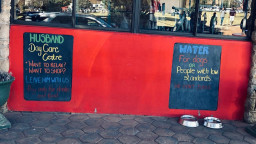 HUSBAND
Day Care
Centre
WANT TO RELAX?
WANT TO SHOP?
LEAVE HIM WITH US
WATER
For dogs or
People with low
standards